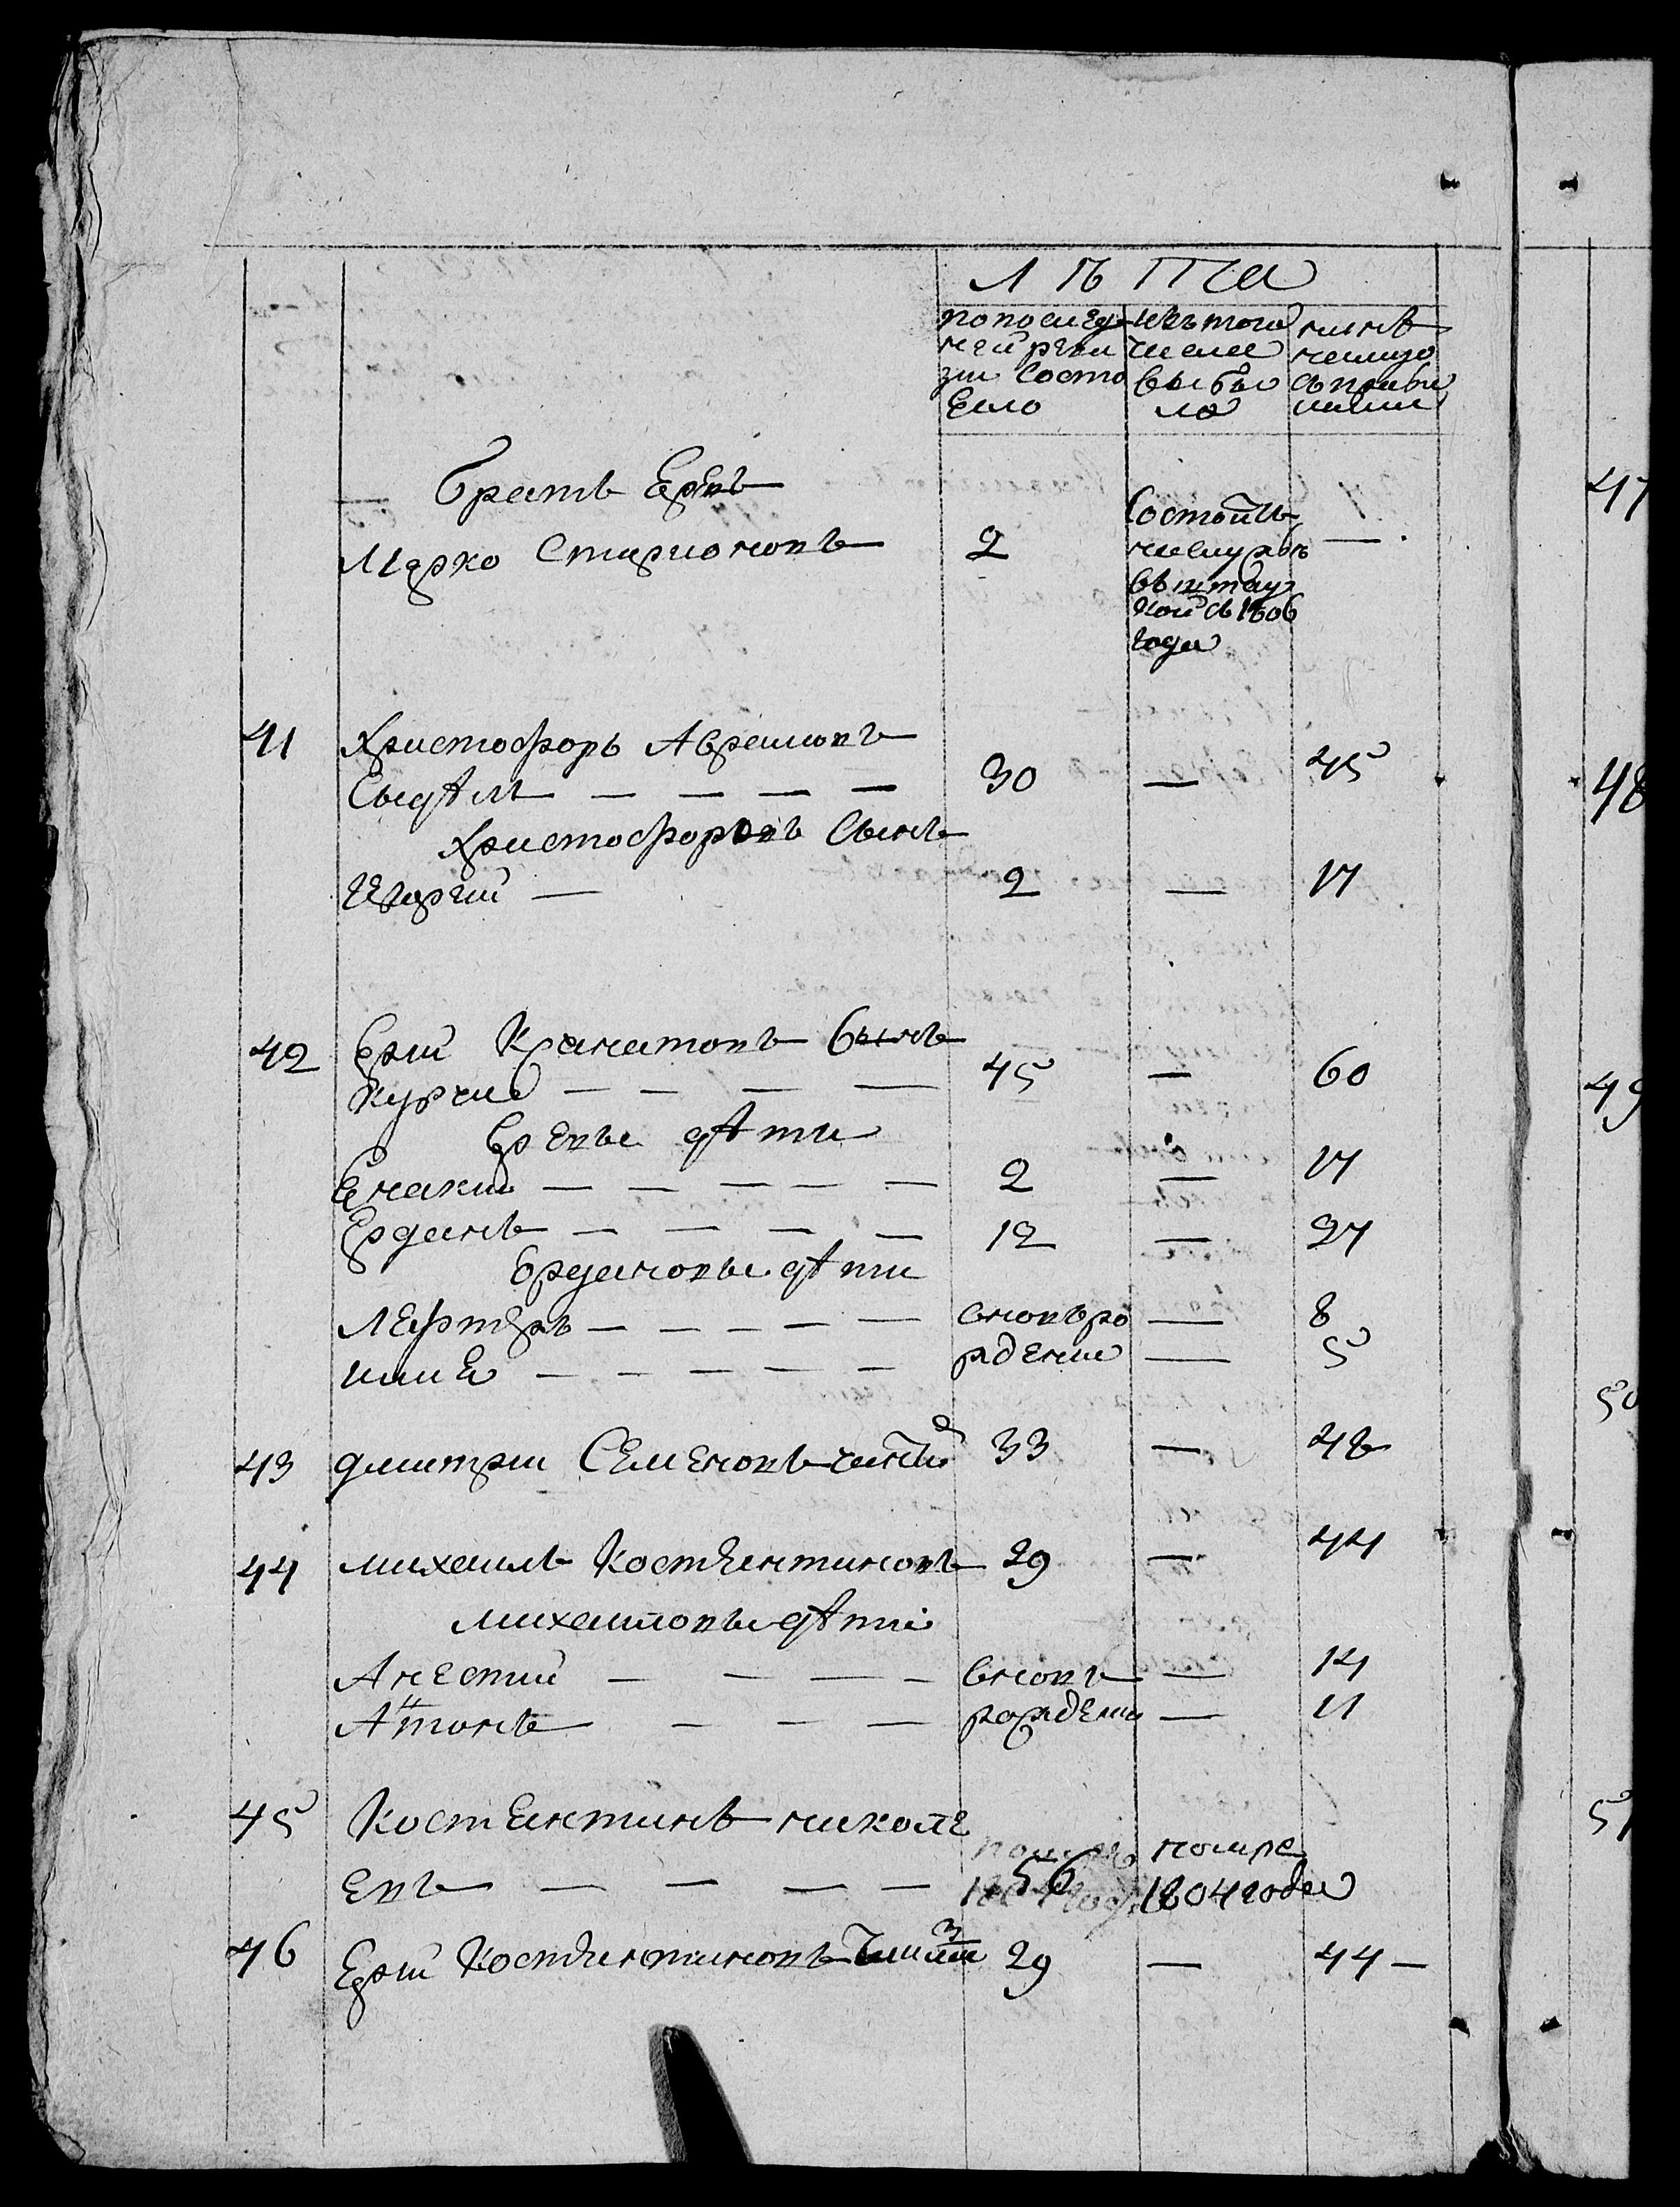 Лѣта
по послед
ней реви
зии состо
ело
изъ того
числа
выбы
ло
нынѣ
на лицо
съ прибы
лыми
братъ Еревъ
Марко Спирионовъ 2 —
Состоитъ
въ
кой съ 1806
года
41 Христофоръ Аврамовъ
Сыдѣлъ — — — — 30 — 45
Христофоровъ Сынъ
Георгий — 2 — 17
42 Ерии Канатовъ Сынъ
Курчи — — — — 45 — 60
Еревы дѣти
Енаки — — — — — 2 — 17
Ерданъ — — — — 12 — 27
Ердановы дѣти
Лефтеръ — — — — — вновь ро — 8
Илие — — — — — жденни — 5
43 дмитри Семеновъ 33 — 48
44 михаилъ Костентиновъ 29 — 44
михаиловы дѣти
Анестий — — — — вновь — 14
Антонъ — — — рожденни — 11
45 Костентинъ никола
евъ — — — — 56
помре
1804 года
46 Ерий Костентиновъ 29 — 44 —
47
48
49
50
51